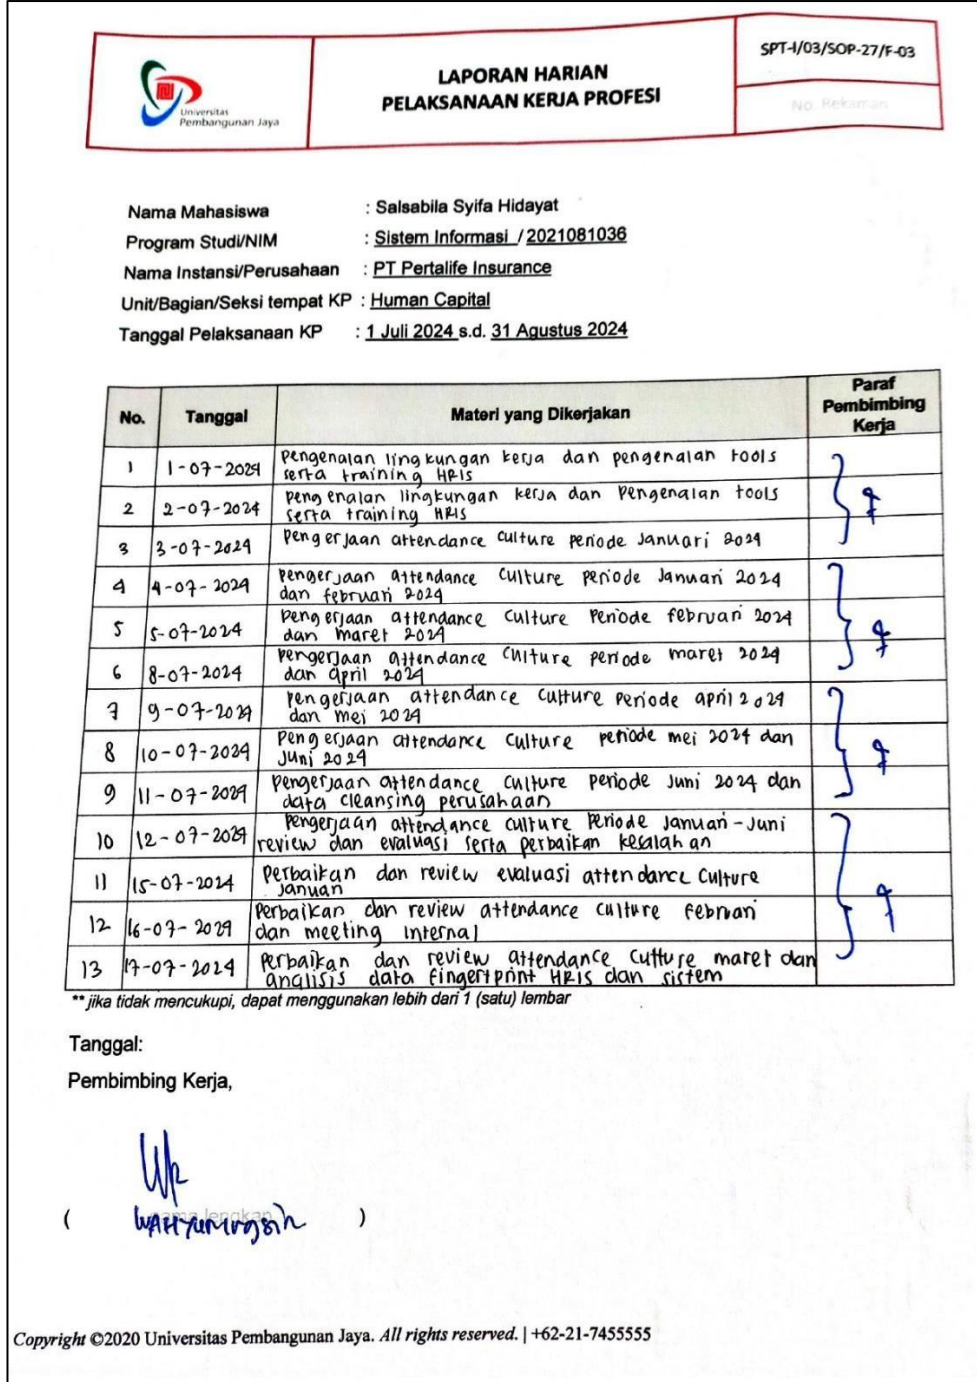 Universitas
Pembangunan Jaya
LAPORAN HARIAN
PELAKSANAAN KERJA PROFESI
SPT-I/03/SOP-27/F-03
No. Rekaman
Nama Mahasiswa : Salsabila Syifa Hidayat
Program Studi/NIM : Sistem Informasi / 2021081036
Nama Instansi/Perusahaan : PT Pertalife Insurance
Unit/Bagian/Seksi tempat KP : Human Capital
Tanggal Pelaksanaan KP : 1 Juli 2024 s.d. 31 Agustus 2024
No. Tanggal Materi yang Dikerjakan Paraf Pembimbing Kerja
1 1-07-2024 Pengenalan lingkungan kerja dan pengenalan tools
serta training HRIS
2 2-07-2024 Pengenalan lingkungan kerja dan Pengenalan tools
serta training HRIS
3 3-07-2024 Pengerjaan attendance culture periode Januari 2024
4 4-07-2024 Pengerjaan attendance culture periode Januari 2024
dan februari 2024
5 5-07-2024 Pengerjaan attendance culture Periode februari 2024
dan maret 2024
6 8-07-2024 Pengerjaan attendance culture periode maret 2024
dan april 2024
7 9-07-2024 Pengerjaan attendance culture periode april 2024
dan mei 2024
8 10-07-2024 Pengerjaan attendance culture periode mei 2024 dan
Juni 2024
9 11-07-2024 Pengerjaan attendance culture periode Juni 2024 dan
data cleansing perusahaan
10 12-07-2024 Pengerjaan attendance culture Periode Januari-Juni
review dan evaluasi serta perbaikan kesalahan
11 15-07-2024 Perbaikan dan review evaluasi attendance Culture
Januari
12 16-07-2024 Perbaikan dan review attendance culture Februari
dan meeting internal
13 17-07-2024 Perbaikan dan review attendance Culture maret dan
analisis data fingertprint HRIS dan sistem
** jika tidak mencukupi, dapat menggunakan lebih dari 1 (satu) lembar
Tanggal:
Pembimbing Kerja,
( nama lengkap )
WAHYUNINGSIH
Copyright ©2020 Universitas Pembangunan Jaya. All rights reserved. | +62-21-7455555